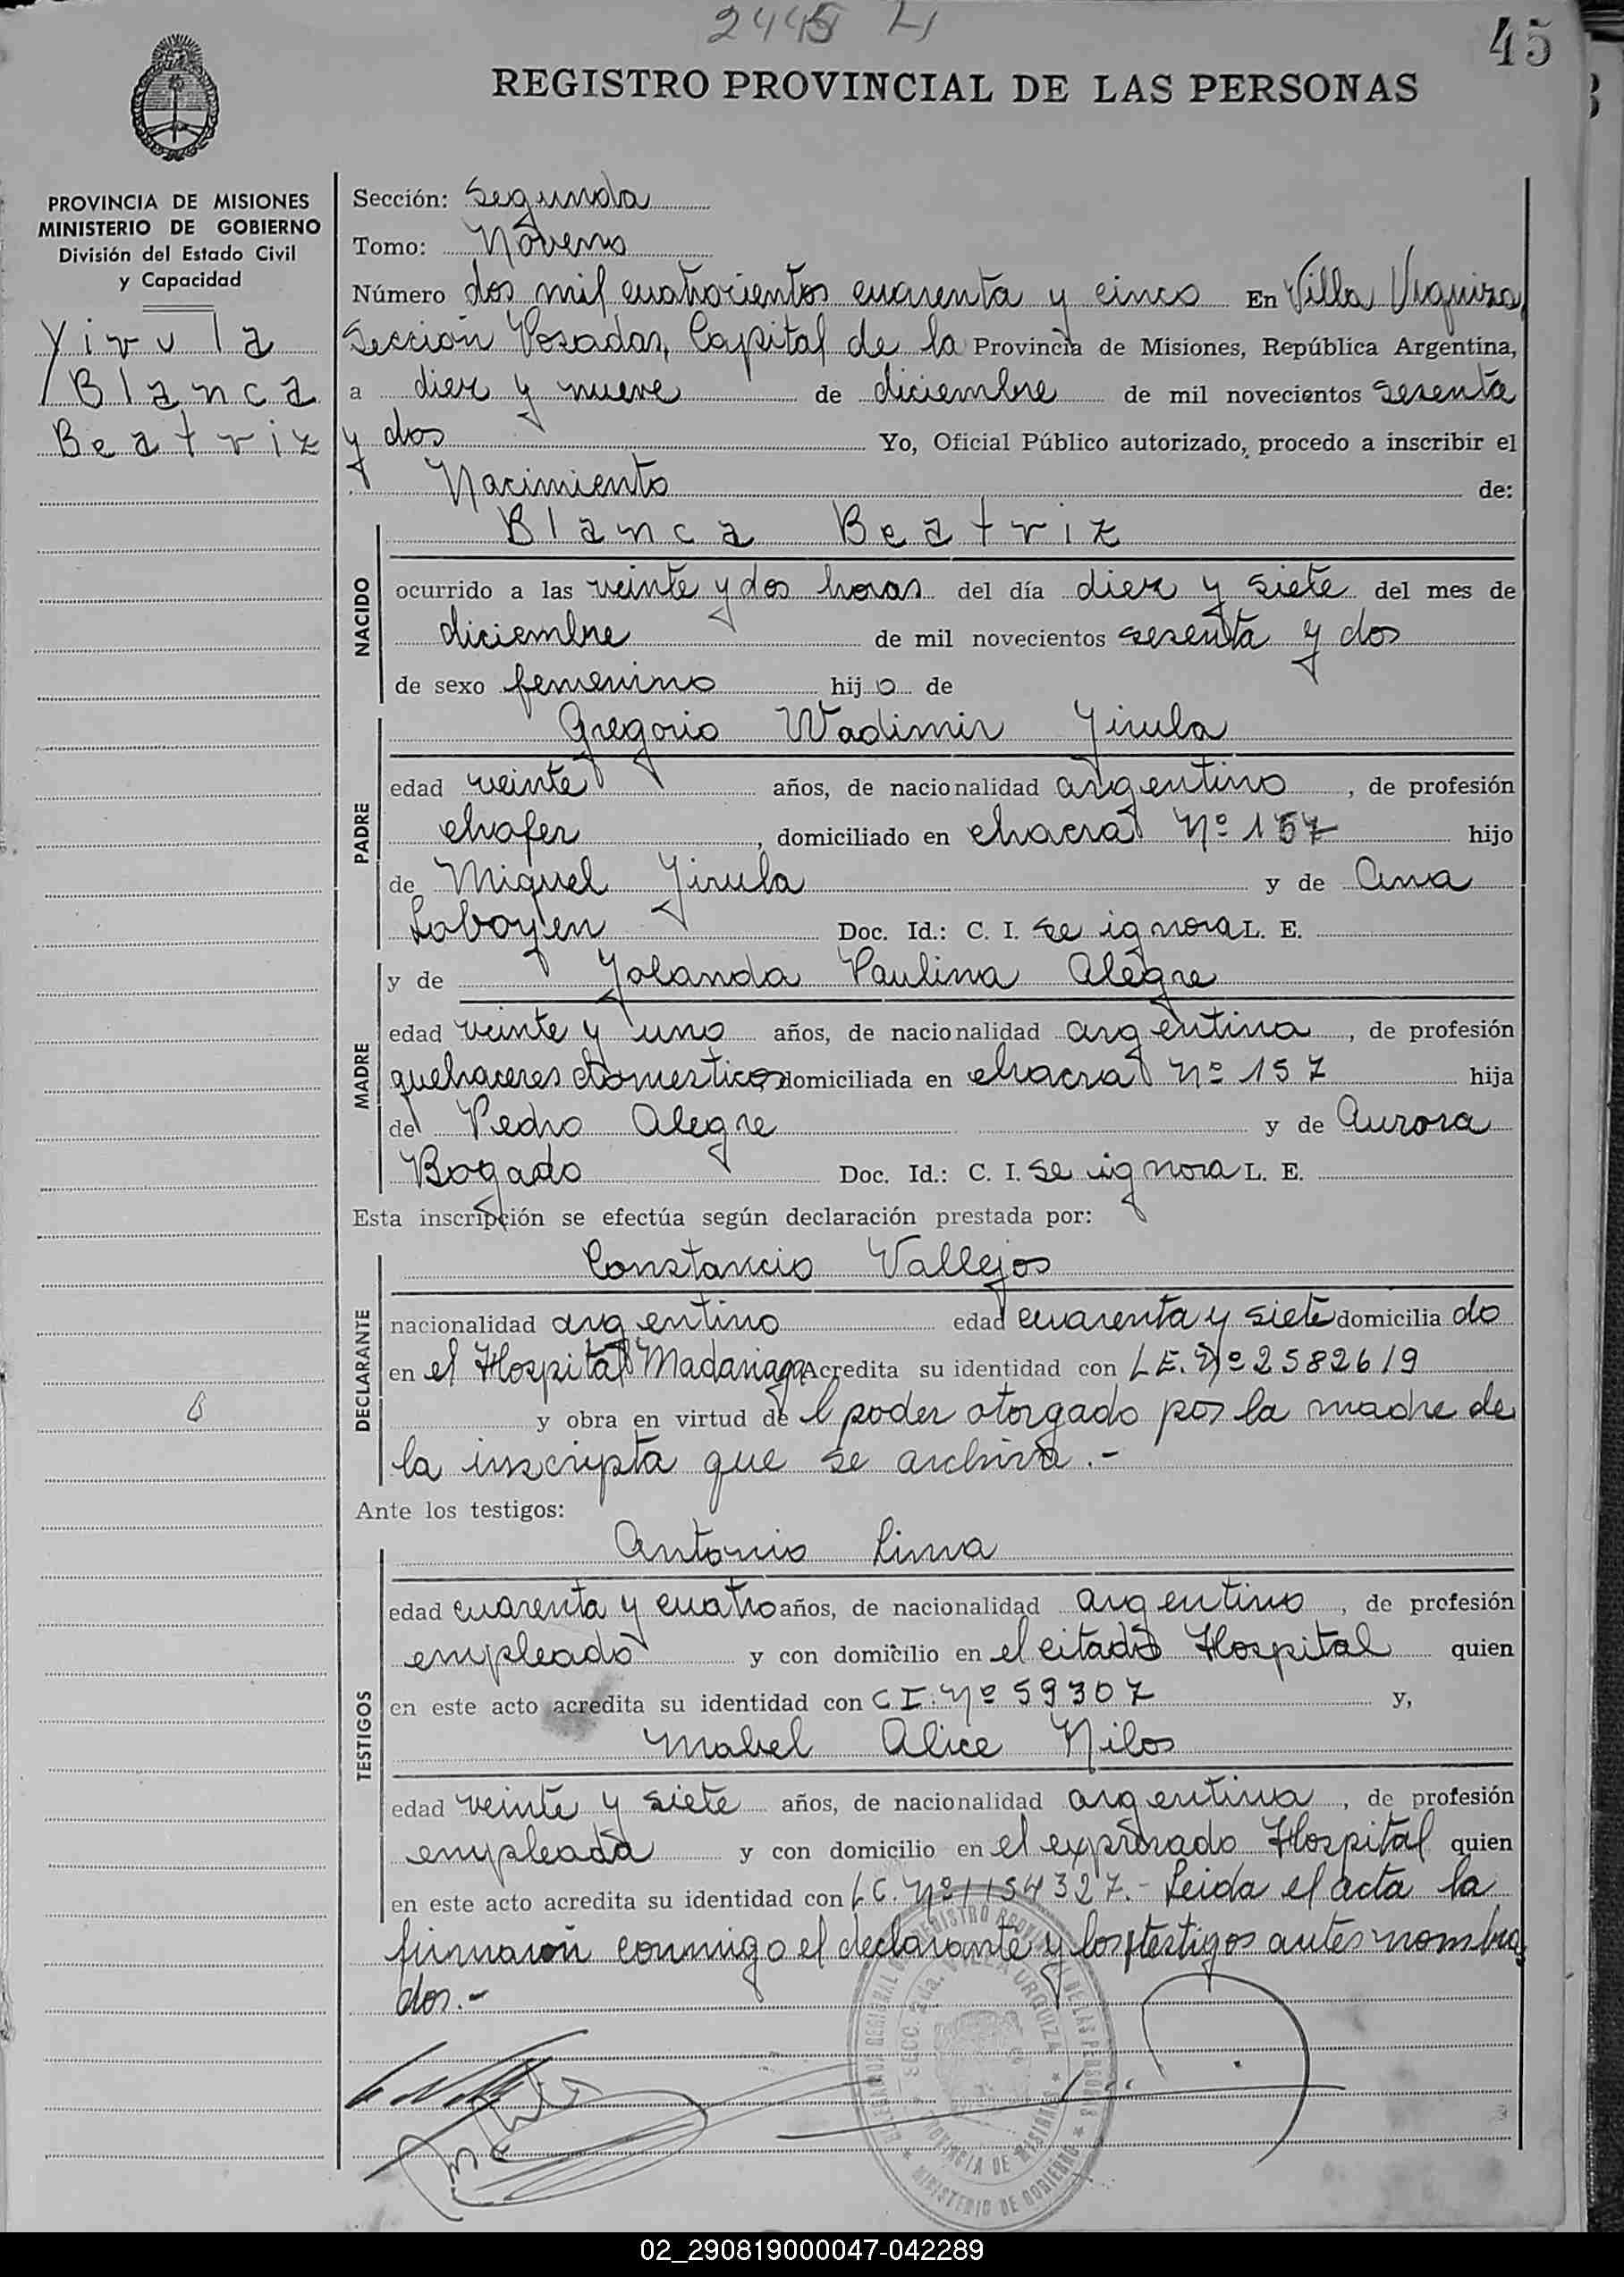 2445
45
REGISTRO PROVINCIAL DE LAS PERSONAS
PROVINCIA DE MISIONES
MINISTERIO DE GOBIERNO
División del Estado Civil
y Capacidad
Yirula
Blanca
Beatriz
Sección: Segunda
Tomo: Noveno
Número dos mil cuatrocientos cuarenta y cinco En Villa Urquiza,
Sección Posadas, Capital de la Provincia de Misiones, República Argentina,
a diez y nueve de diciembre de mil novecientos sesenta
y dos Yo, Oficial Público autorizado, procedo a inscribir el
Nacimiento de:
NACIDO
Blanca Beatriz
ocurrido a las veinte y dos horas del día diez y siete del mes de
diciembre de mil novecientos sesenta y dos
de sexo femenino hijo de
PADRE
Gregorio Wadimir Yirula
edad veinte años, de nacionalidad argentino, de profesión
chofer, domiciliado en chacra Nº 157 hijo
de Miguel Yirula y de Ana
Laboyen Doc. Id.: C. I. se ignora L. E.
MADRE
y de Yolanda Paulina Alegre
edad veinte y uno años, de nacionalidad argentina, de profesión
quehaceres domesticos domiciliada en chacra Nº 157 hija
de Pedro Alegre y de Aurora
Bogado Doc. Id.: C. I. se ignora L. E.
Esta inscripción se efectúa según declaración prestada por:
DECLARANTE
Constancio Vallejos
nacionalidad argentino edad cuarenta y siete domiciliado
en el Hospital Madariaga Acredita su identidad con L.E. Nº 2582619
y obra en virtud del poder otorgado por la madre de
la inscripta que se archiva.-
Ante los testigos:
TESTIGOS
Antonio Lima
edad cuarenta y cuatro años, de nacionalidad argentino, de profesión
empleado y con domicilio en el citado Hospital quien
en este acto acredita su identidad con C.I. Nº 59307 y,
Mabel Alice Nilos
edad veinte y siete años, de nacionalidad argentina, de profesión
empleada y con domicilio en el expresado Hospital quien
en este acto acredita su identidad con L.C. Nº 1154327.- Leida el acta la
firmaron conmigo el declarante y los testigos antes nombra
dos.-
SECC. 2da. VILLA URQUIZA
PROVINCIA DE MISIONES
MINISTERIO DE GOBIERNO
02_290819000047-042289